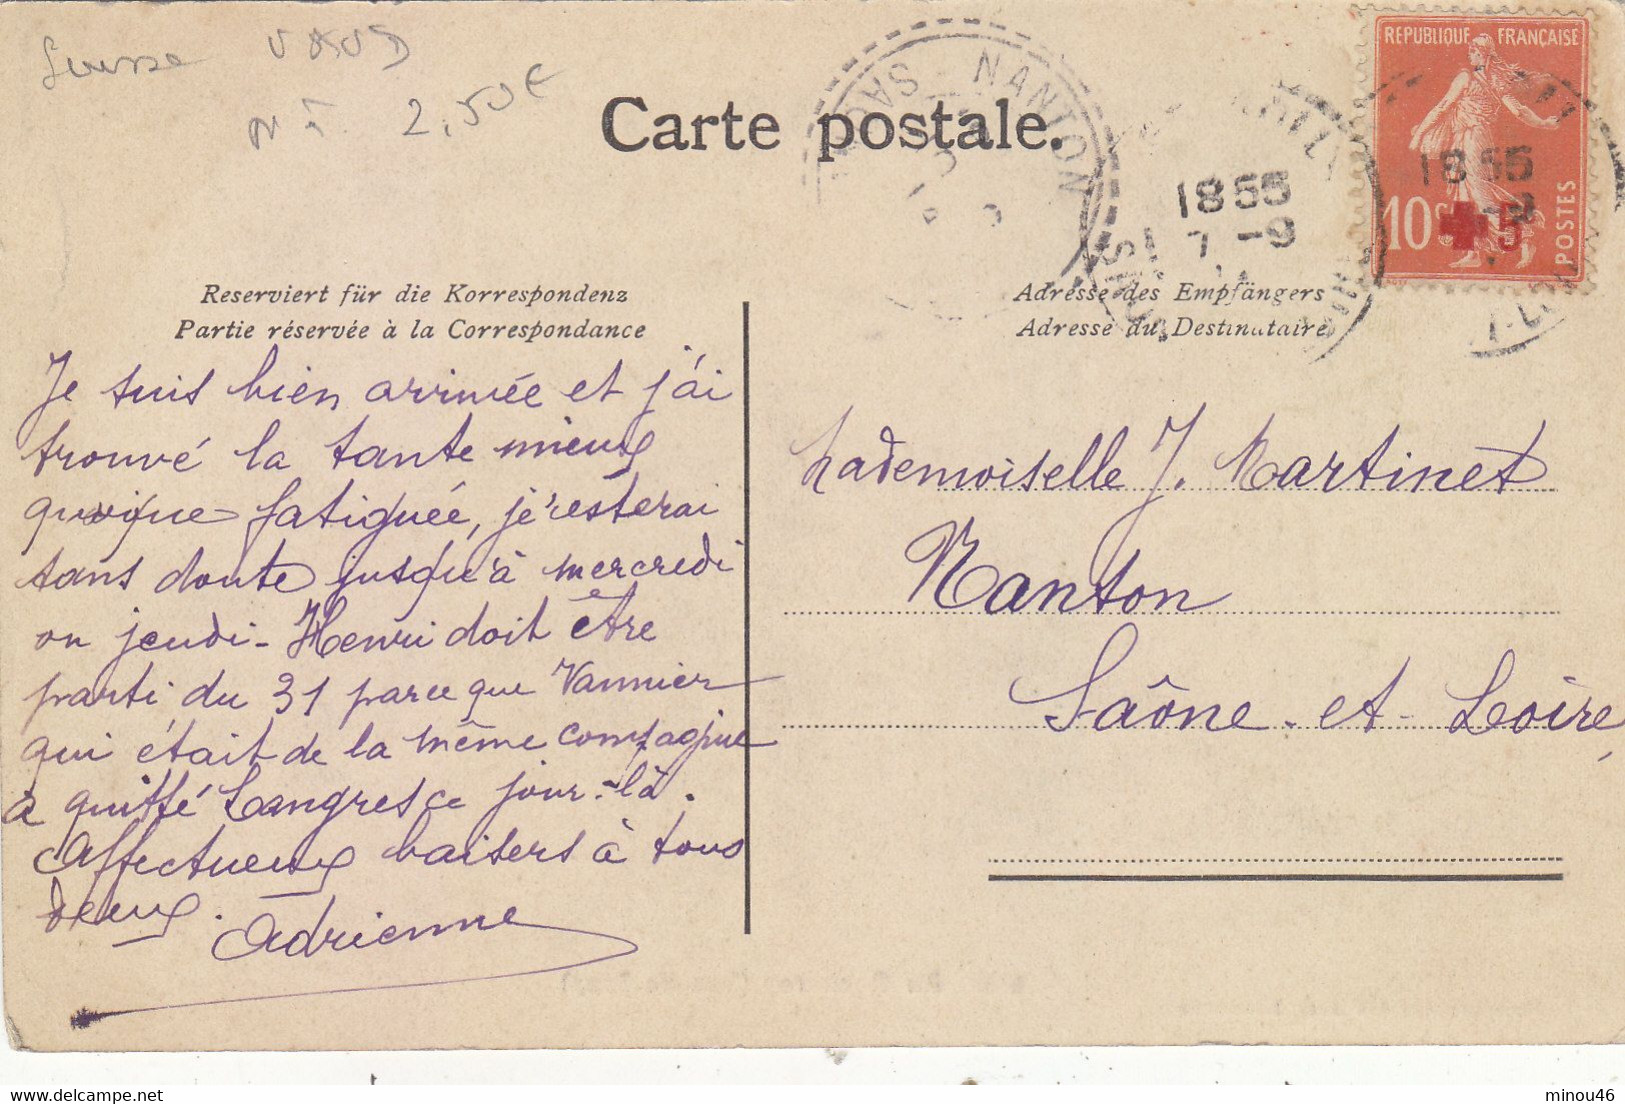 Suisse VAUD
2,50€
Carte postale.
NANTON
RÉPUBLIQUE FRANÇAISE
10c
5
POSTES
18 55
7 - 9
18 55
Reserviert für die Korrespondenz
Partie réservée à la Correspondance
Adresse des Empfängers
Adresse du Destinataire
Je suis bien arrivée et j'ai
trouvé la tante mieux
quoique fatiguée, je resterai
sans doute jusqu'à mercredi
ou jeudi - Henri doit être
parti du 31 parce que Vannier
qui était de la même compagnie
a quitté Langres ce jour-là.
Affectueux baisers à tous
deux.
Adrienne
Mademoiselle J. Martinet
Nanton
Saône-et-Loire
delcampe.net
minou46